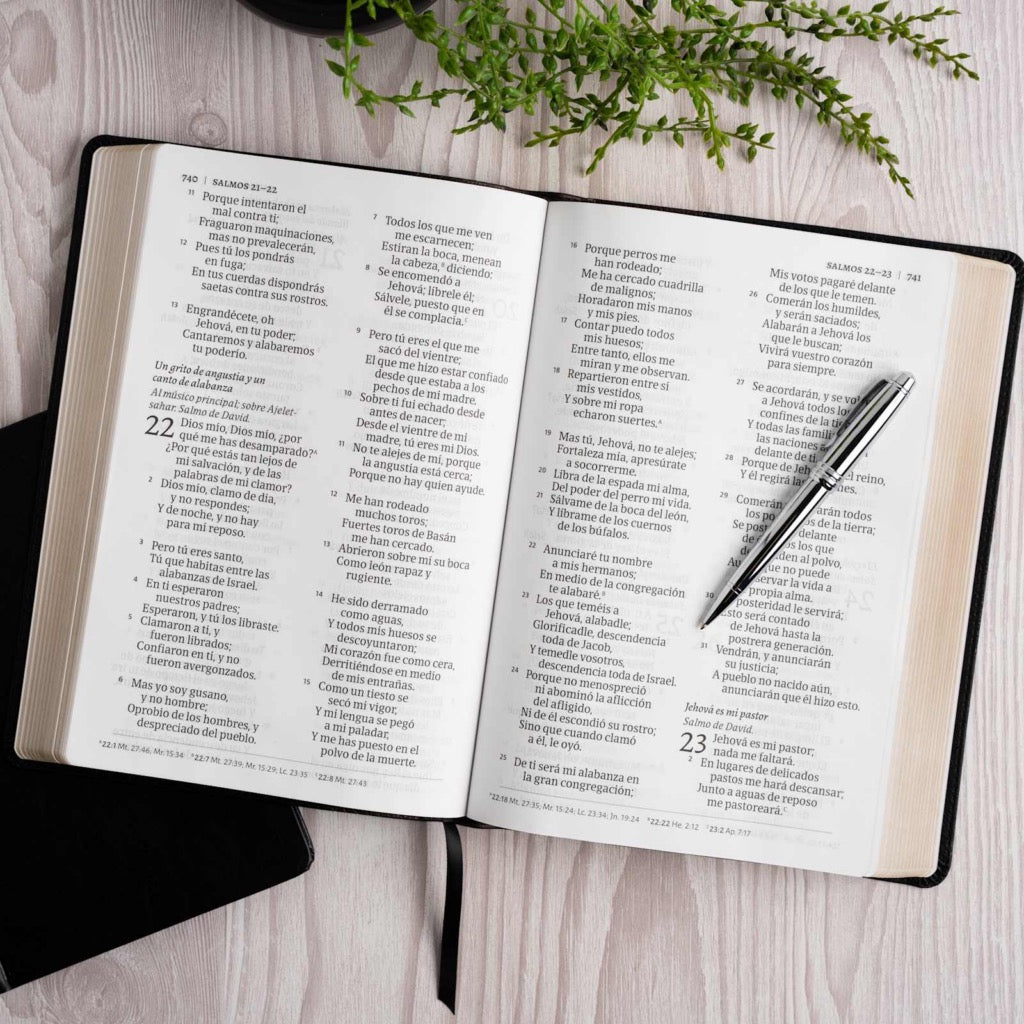 740 | SALMOS 21–22
11 Porque intentaron el
mal contra ti;
Fraguaron maquinaciones,
mas no prevalecerán,
12 Pues tú los pondrás
en fuga;
En tus cuerdas dispondrás
saetas contra sus rostros.
13 Engrandécete, oh
Jehová, en tu poder;
Cantaremos y alabaremos
tu poderío.
Un grito de angustia y un
canto de alabanza
Al músico principal; sobre Ajelet-
sahar. Salmo de David.
22 Dios mío, Dios mío, ¿por
qué me has desamparado?A
¿Por qué estás tan lejos de
mi salvación, y de las
palabras de mi clamor?
2 Dios mío, clamo de día,
y no respondes;
Y de noche, y no hay
para mi reposo.
3 Pero tú eres santo,
Tú que habitas entre las
alabanzas de Israel.
4 En ti esperaron
nuestros padres;
Esperaron, y tú los libraste.
5 Clamaron a ti, y
fueron librados;
Confiaron en ti, y no
fueron avergonzados.
6 Mas yo soy gusano,
y no hombre;
Oprobio de los hombres, y
despreciado del pueblo.
7 Todos los que me ven
me escarnecen;
Estiran la boca, menean
la cabeza,B diciendo;
8 Se encomendó a
Jehová; líbrele él;
Sálvele, puesto que en
él se complacía.C
9 Pero tú eres el que me
sacó del vientre;
El que me hizo estar confiado
desde que estaba a los
pechos de mi madre.
10 Sobre ti fui echado desde
antes de nacer;
Desde el vientre de mi
madre, tú eres mi Dios.
11 No te alejes de mí, porque
la angustia está cerca;
Porque no hay quien ayude.
12 Me han rodeado
muchos toros;
Fuertes toros de Basán
me han cercado.
13 Abrieron sobre mí su boca
Como león rapaz y
rugiente.
14 He sido derramado
como aguas,
Y todos mis huesos se
descoyuntaron;
Mi corazón fue como cera,
Derritiéndose en medio
de mis entrañas.
15 Como un tiesto se
secó mi vigor,
Y mi lengua se pegó
a mi paladar,
Y me has puesto en el
polvo de la muerte.
A22:1 Mt. 27:46, Mr. 15:34 B22:7 Mt. 27:39; Mr. 15:29; Lc. 23:35 C22:8 Mt. 27:43
SALMOS 22–23 | 741
16 Porque perros me
han rodeado;
Me ha cercado cuadrilla
de malignos;
Horadaron mis manos
y mis pies.
17 Contar puedo todos
mis huesos;
Entre tanto, ellos me
miran y me observan.
18 Repartieron entre sí
mis vestidos,
Y sobre mi ropa
echaron suertes.A
19 Mas tú, Jehová, no te alejes;
Fortaleza mía, apresúrate
a socorrerme.
20 Libra de la espada mi alma,
Del poder del perro mi vida.
21 Sálvame de la boca del león,
Y líbrame de los cuernos
de los búfalos.
22 Anunciaré tu nombre
a mis hermanos;
En medio de la congregación
te alabaré.B
23 Los que teméis a
Jehová, alabadle;
Glorificadle, descendencia
toda de Jacob,
Y temedle vosotros,
descendencia toda de Israel.
24 Porque no menospreció
ni abominó la aflicción
del afligido,
Ni de él escondió su rostro;
Sino que cuando clamó
a él, le oyó.
25 De ti será mi alabanza en
la gran congregación;
Mis votos pagaré delante
de los que le temen.
26 Comerán los humildes,
y serán saciados;
Alabarán a Jehová los
que le buscan;
Vivirá vuestro corazón
para siempre.
27 Se acordarán, y se
a Jehová todos los
confines de la
Y todas las
las naciones
delante de
28 Porque de el reino,
Y él regirá las
29 Comerán todos
los de la tierra;
Se delante
de los que
al polvo,
que no puede
la vida a
propia alma.
30 posteridad le servirá;
será contado
de Jehová hasta la
postrera generación.
31 Vendrán, y anunciarán
su justicia;
A pueblo no nacido aún,
anunciarán que él hizo esto.
Jehová es mi pastor
Salmo de David.
23 Jehová es mi pastor;
nada me faltará.
2 En lugares de delicados
pastos me hará descansar;
Junto a aguas de reposo
me pastoreará.C
A22:18 Mt. 27:35; Mr. 15:24; Lc. 23:34; Jn. 19:24 B22:22 He. 2:12 C23:2 Ap. 7:17